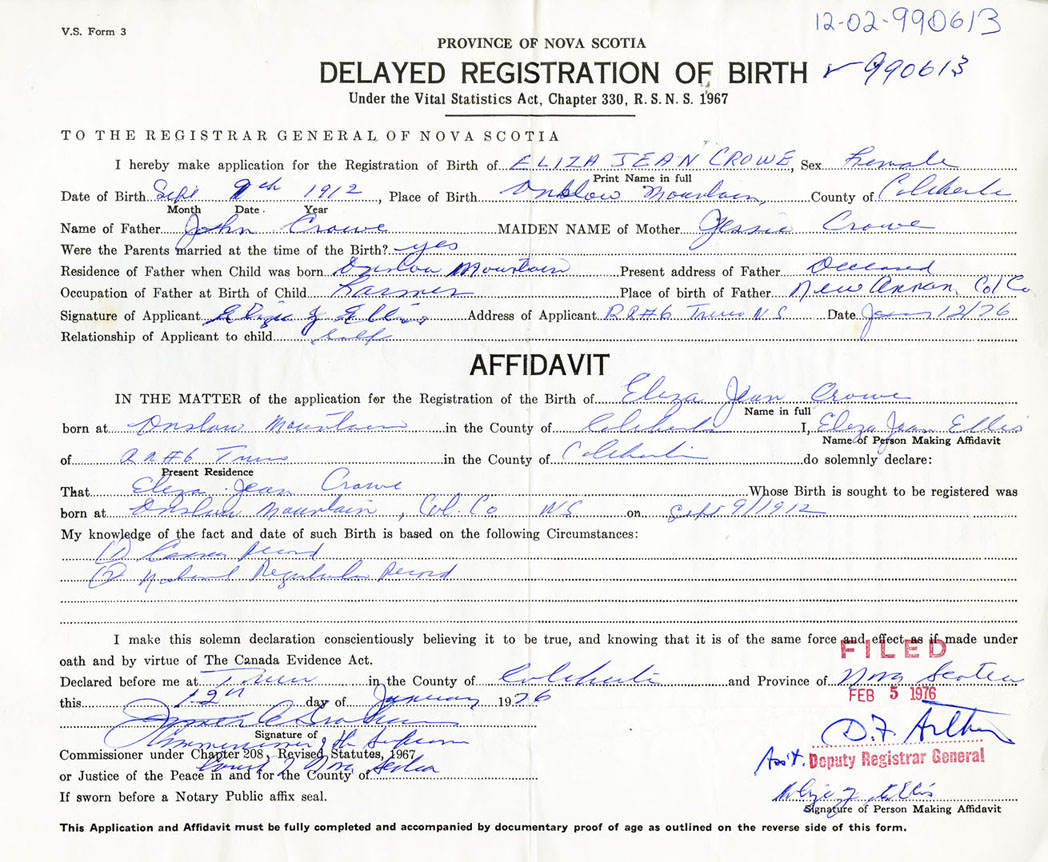 V.S. Form 3
12-02-990613
PROVINCE OF NOVA SCOTIA
DELAYED REGISTRATION OF BIRTH 990613
Under the Vital Statistics Act, Chapter 330, R.S.N.S. 1967
TO THE REGISTRAR GENERAL OF NOVA SCOTIA
I hereby make application for the Registration of Birth of ELIZA JEAN CROWE, Sex Female
Print Name in full
Date of Birth Sept 9th 1912, Place of Birth Onslow Mountain, County of Colchester
Month Date Year
Name of Father John Crowe MAIDEN NAME of Mother Jessie Crowe
Were the Parents married at the time of the Birth? yes
Residence of Father when Child was born Onslow Mountain Present address of Father Deceased
Occupation of Father at Birth of Child Farmer Place of birth of Father New Annan, Col Co
Signature of Applicant Eliza J Ellis Address of Applicant RR#6 Truro N.S. Date Jan 12/76
Relationship of Applicant to child Self
AFFIDAVIT
IN THE MATTER of the application for the Registration of the Birth of Eliza Jean Crowe
Name in full
born at Onslow Mountain in the County of Colchester I, Eliza Jean Ellis
Name of Person Making Affidavit
of RR#6 Truro in the County of Colchester do solemnly declare:
Present Residence
That Eliza Jean Crowe Whose Birth is sought to be registered was
born at Onslow Mountain, Col. Co NS on Sept 9/1912
My knowledge of the fact and date of such Birth is based on the following Circumstances:
(1) Census Record
(2) National Registration Record
I make this solemn declaration conscientiously believing it to be true, and knowing that it is of the same force and effect as if made under
oath and by virtue of The Canada Evidence Act.
FILED
Declared before me at Truro in the County of Colchester and Province of Nova Scotia
this 12th day of January 1976
FEB 5 1976
Signature of
Commissioner of the Supreme
Commissioner under Chapter 208, Revised Statutes, 1967
Court of Nova Scotia
or Justice of the Peace in and for the County of
D.F. Arthur
Ass't. Deputy Registrar General
If sworn before a Notary Public affix seal.
Eliza J Ellis
Signature of Person Making Affidavit
This Application and Affidavit must be fully completed and accompanied by documentary proof of age as outlined on the reverse side of this form.